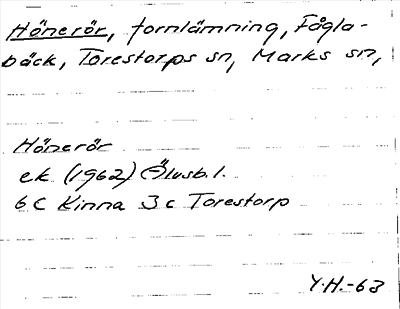 Hönerör, fornlämning, Fågla-
bäck, Torestorps sn, Marks sn,
Hönerör
ek. (1962) Älvsb. l.
6 C Kinna 3 c Torestorp
Y.H.-63